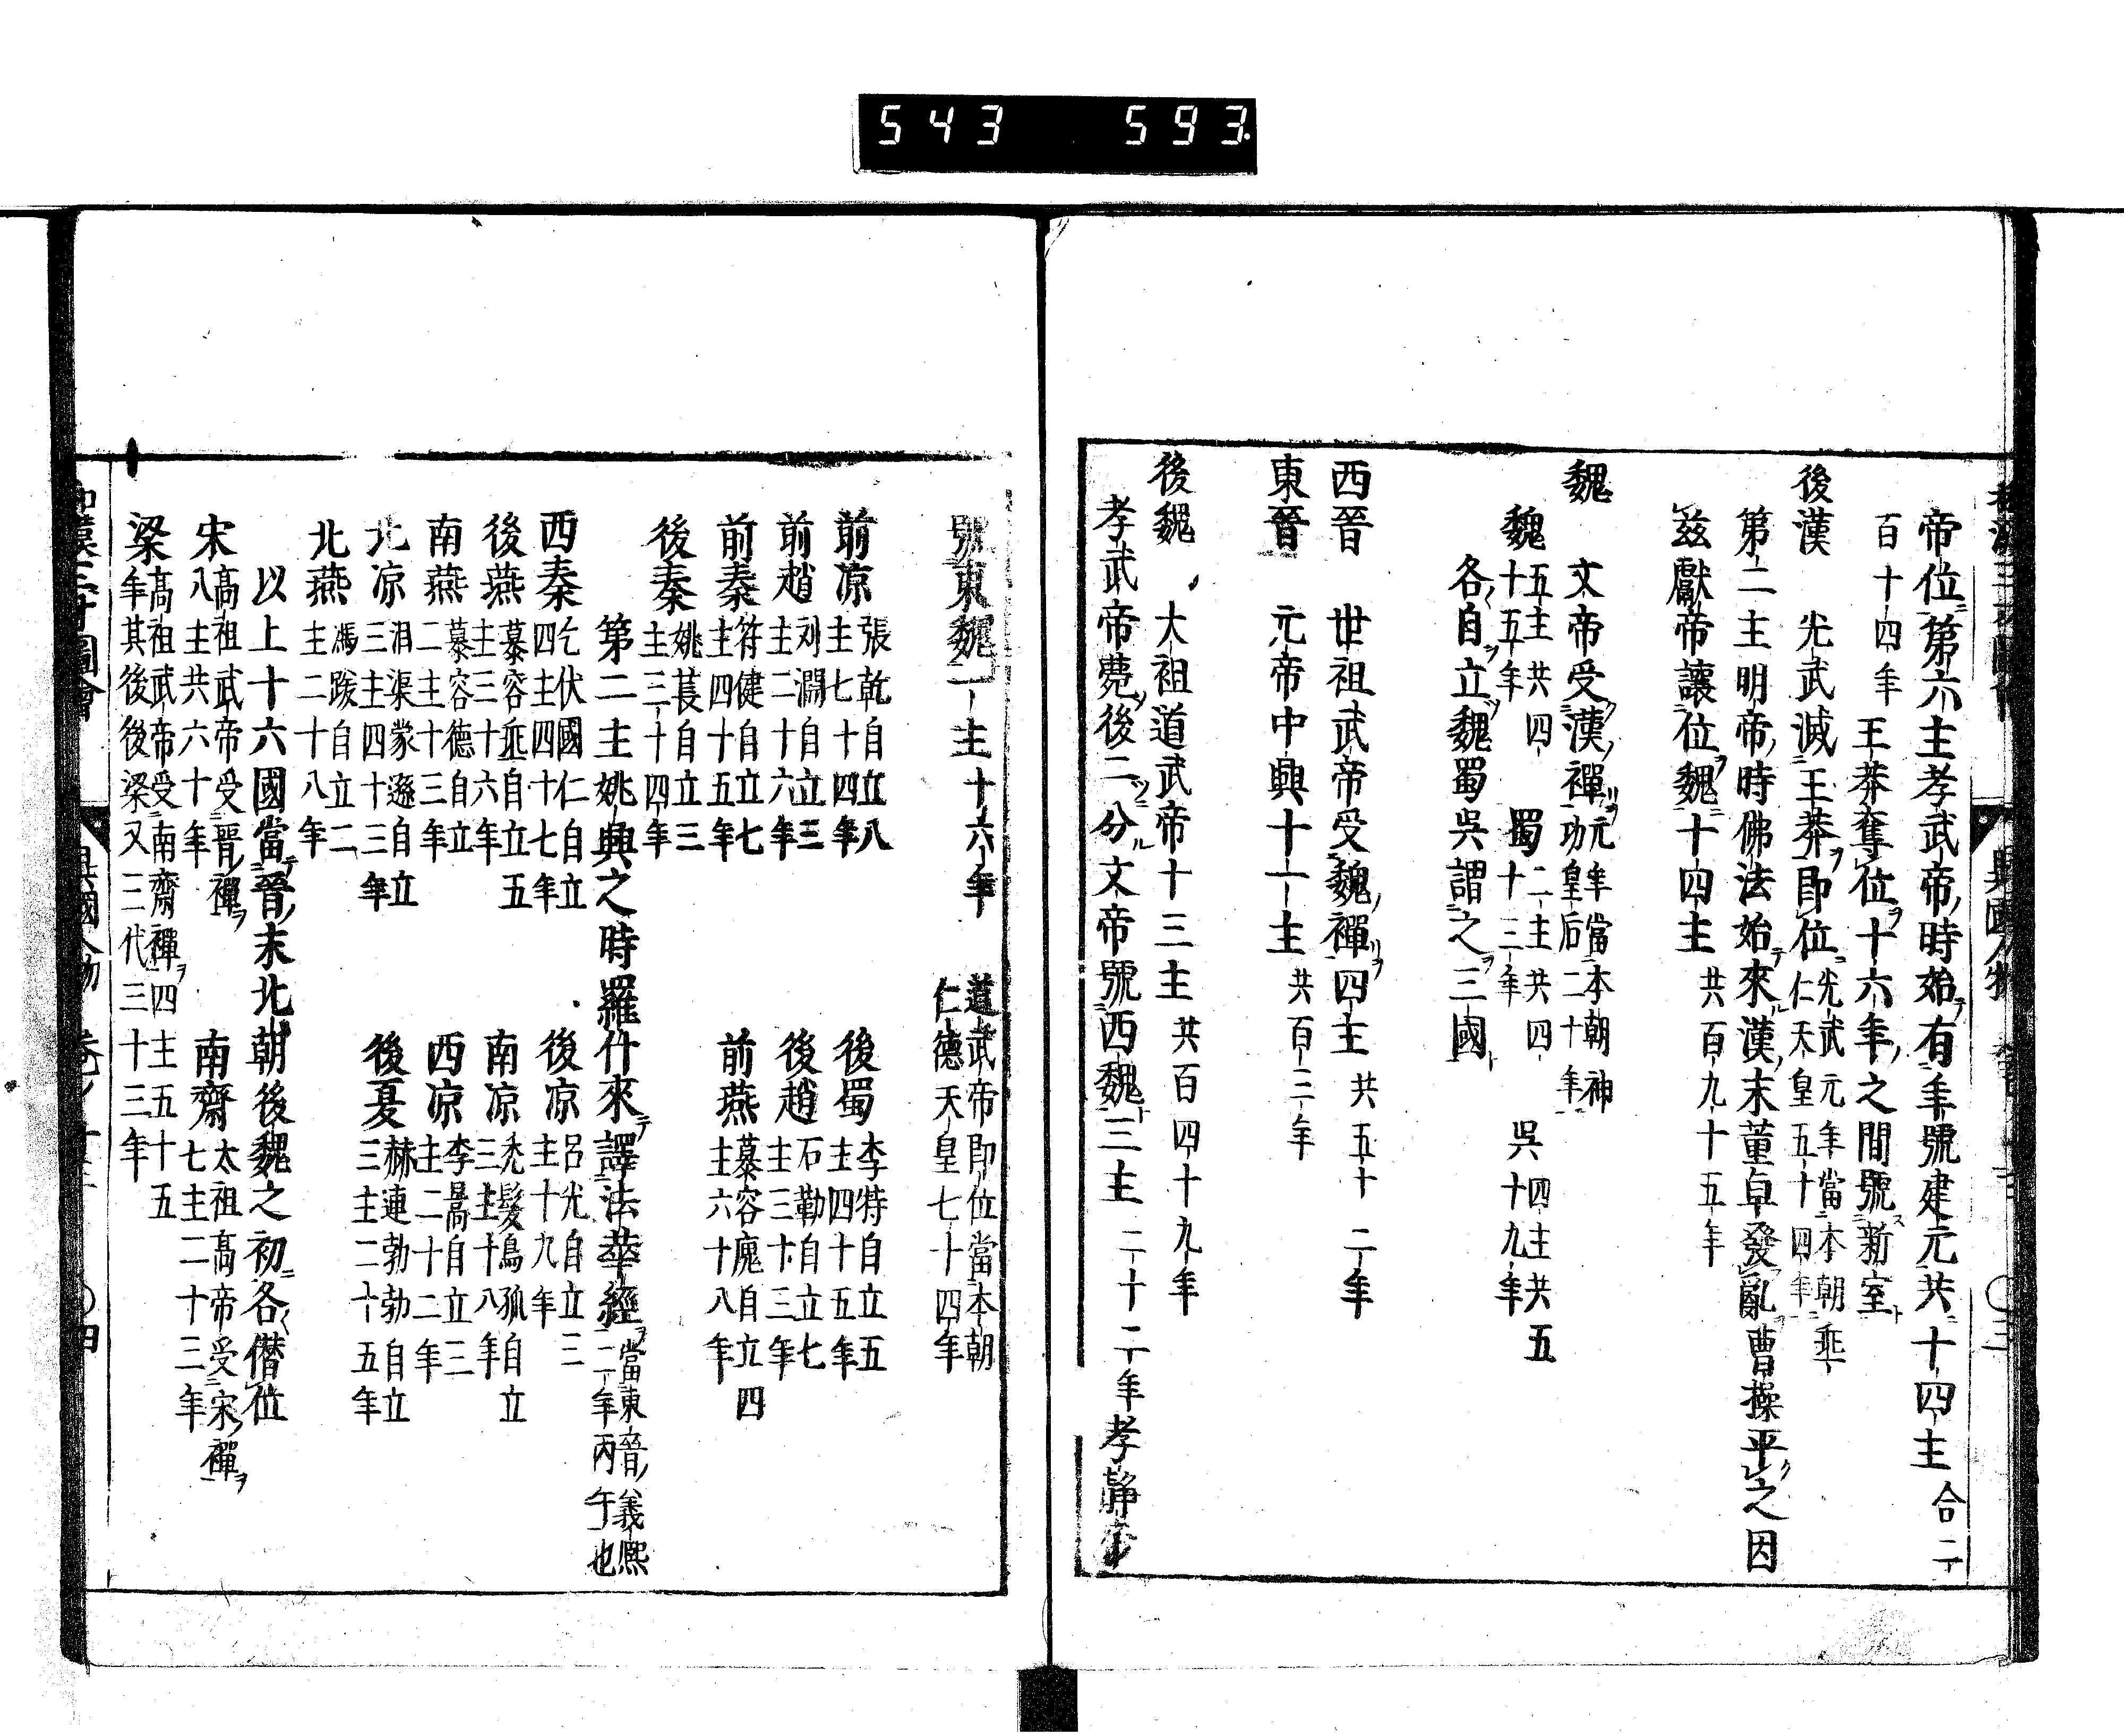 543 593.
帝位第六主孝武帝ノ時始テ有年號建元共十四主 合二
百十四年 王莽奪位ヲ十六年ノ之間號ス新室ト
後漢 光武滅王莽ヲ即位 光武元年當本朝垂
仁天皇五十四年
第二主明帝ノ時佛法始テ來ル漢ノ末董卓發亂曹操平之因
兹獻帝讓位ヲ魏十四主 共百九十五年
魏 文帝受漢ノ禪ヲ 元年當本朝神
功皇后二十年
魏 五主共四
十五年
蜀 二主共四
十三年
呉 四主共五
十九年
各自立魏蜀呉謂之ヲ三國ト
西晉 世祖武帝受魏ノ禪ヲ四主 共五十二年
東晉 元帝中興十一主 共百三年
後魏 大祖道武帝十三主 共百四十九年
孝武帝薨後二分ル文帝號西魏ト三主 二十二年孝靜帝
號東魏一主十六年 道武帝即位當本朝
仁德天皇七十四年
前凉 張乾自立八
主七十四年
後蜀 李特自立五
主四十五年
前趙 刘淵自立三
主二十六年
後趙 石勒自立七
主三十三年
前秦 符健自立七
主四十五年
前燕 慕容廆自立四
主六十八年
後秦 姚萇自立三
主三十四年
第二主姚興之時羅什來テ譯法華經ヲ 當東晉ノ義熙
二年丙午也
西秦 乞伏國仁自立
四主四十七年
後凉 呂光自立三
主十九年
後燕 慕容垂自立五
主三十六年
南凉 禿髮烏孤自立
三主十八年
南燕 慕容德自立
二主十三年
西凉 李暠自立三
主二十二年
北凉 沮渠蒙遜自立
三主四十三年
後夏 赫連勃勃自立
三主二十五年
北燕 馮跋自立二
主二十八年
以上十六國當晉ノ末北朝後魏之初各僭位
宋 高祖武帝受晋ノ禪ヲ
八主共六十年
南齋 太祖高帝受宋ノ禪ヲ
七主二十三年
梁 高祖武帝受南齋禪ヲ四主五十五
年其後後梁又三代三十三年